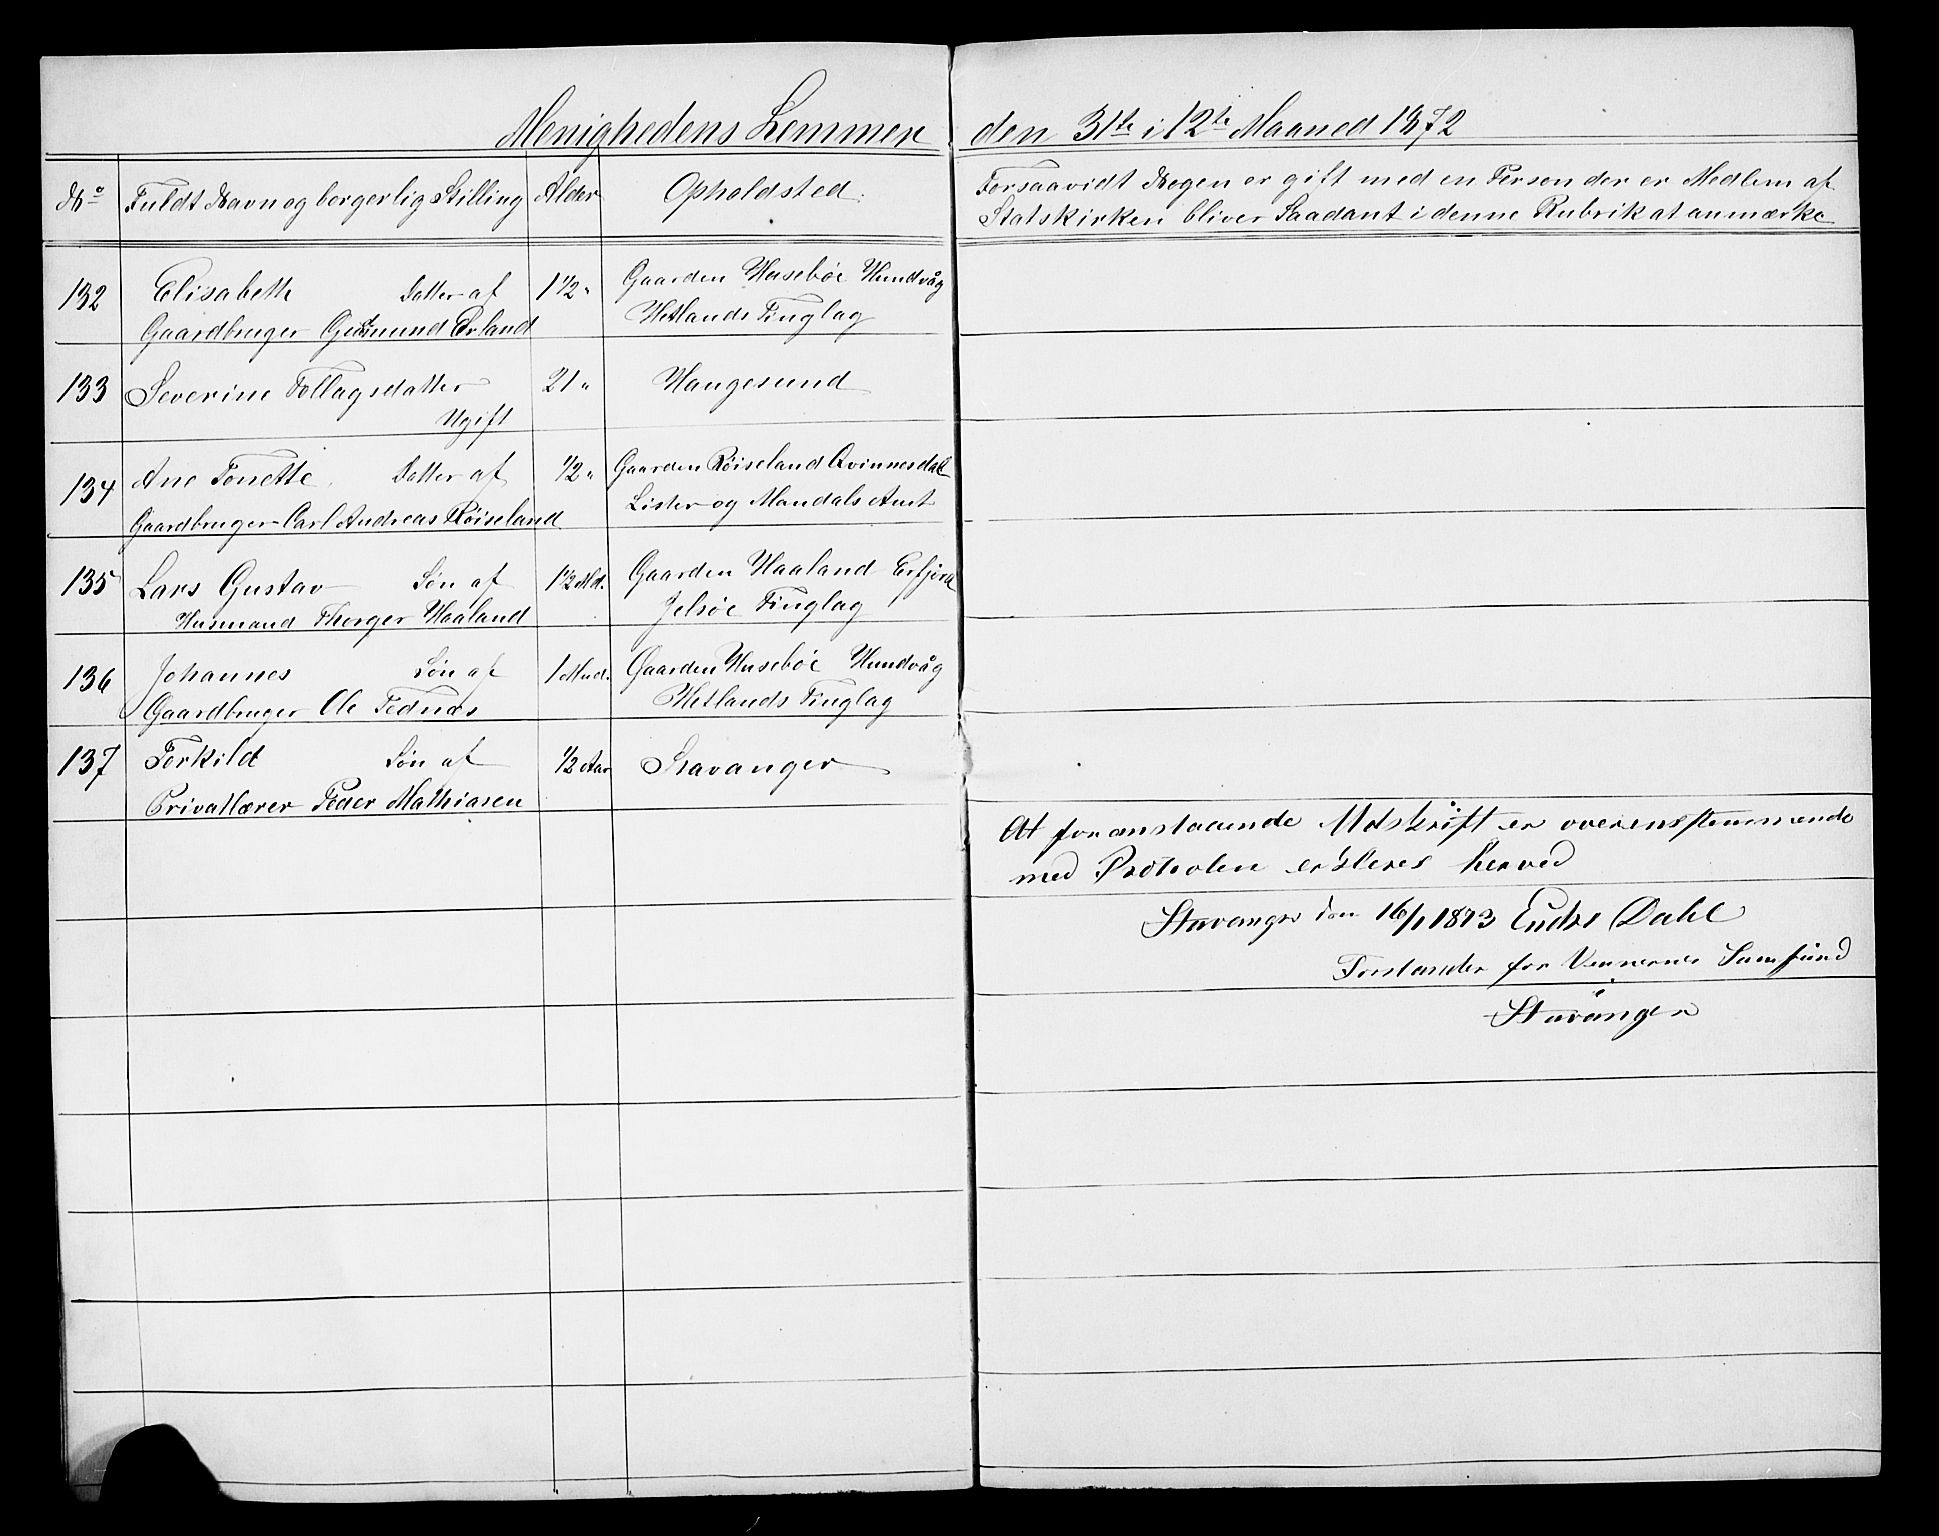 Menighedens Lemmer den 31te i 12te Maaned 1872
No Fuldt Navn og borgerlig Stilling Alder Opholdsted. Forsaavidt Nogen er gift med en Person der er Medlem af
Statskirken bliver Saadant i denne Rubrik at anmærke
132 Elisabeth Datter af 1 1/2 " Gaarden Husebøe Hundvåg
Gaardbruger Gudmund Erland Hetlands Tinglag
133 Severine Tollagsdatter 21 " Haugesund
Ugift
134 Ane Tonette. Datter af 1/2 " Gaarden Røiseland Qvinnesdal
Gaardbruger Carl Andreas Røiseland Lister og Mandals Amt
135 Lars Gustav Søn af 1 1/2 Md. Gaarden Haaland Erfjord
Husmand Thorger Haaland Jelsøe Tinglag
136 Johannes Søn af 1 Mnd. Gaarden Husebøe Hundvåg
Gaardbruger Ole Tednæs Hetlands Tinglag
137 Terkild Søn af 1/2 Aar Stavanger
Privatlærer Peder Mathiasen
At foranstaaende Udskrift er overensstemmende
med Protokolen erkleres herved
Stavanger den 16/1 1873 Endre Dahl
Forstander for Vennernes Samfund
Stavanger